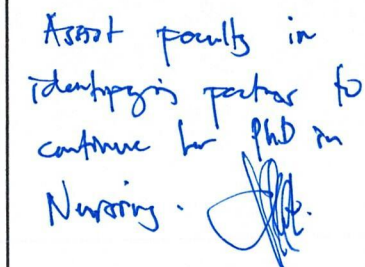 Assist faculty in
identifying partner to
continue her PhD in
Nursing.